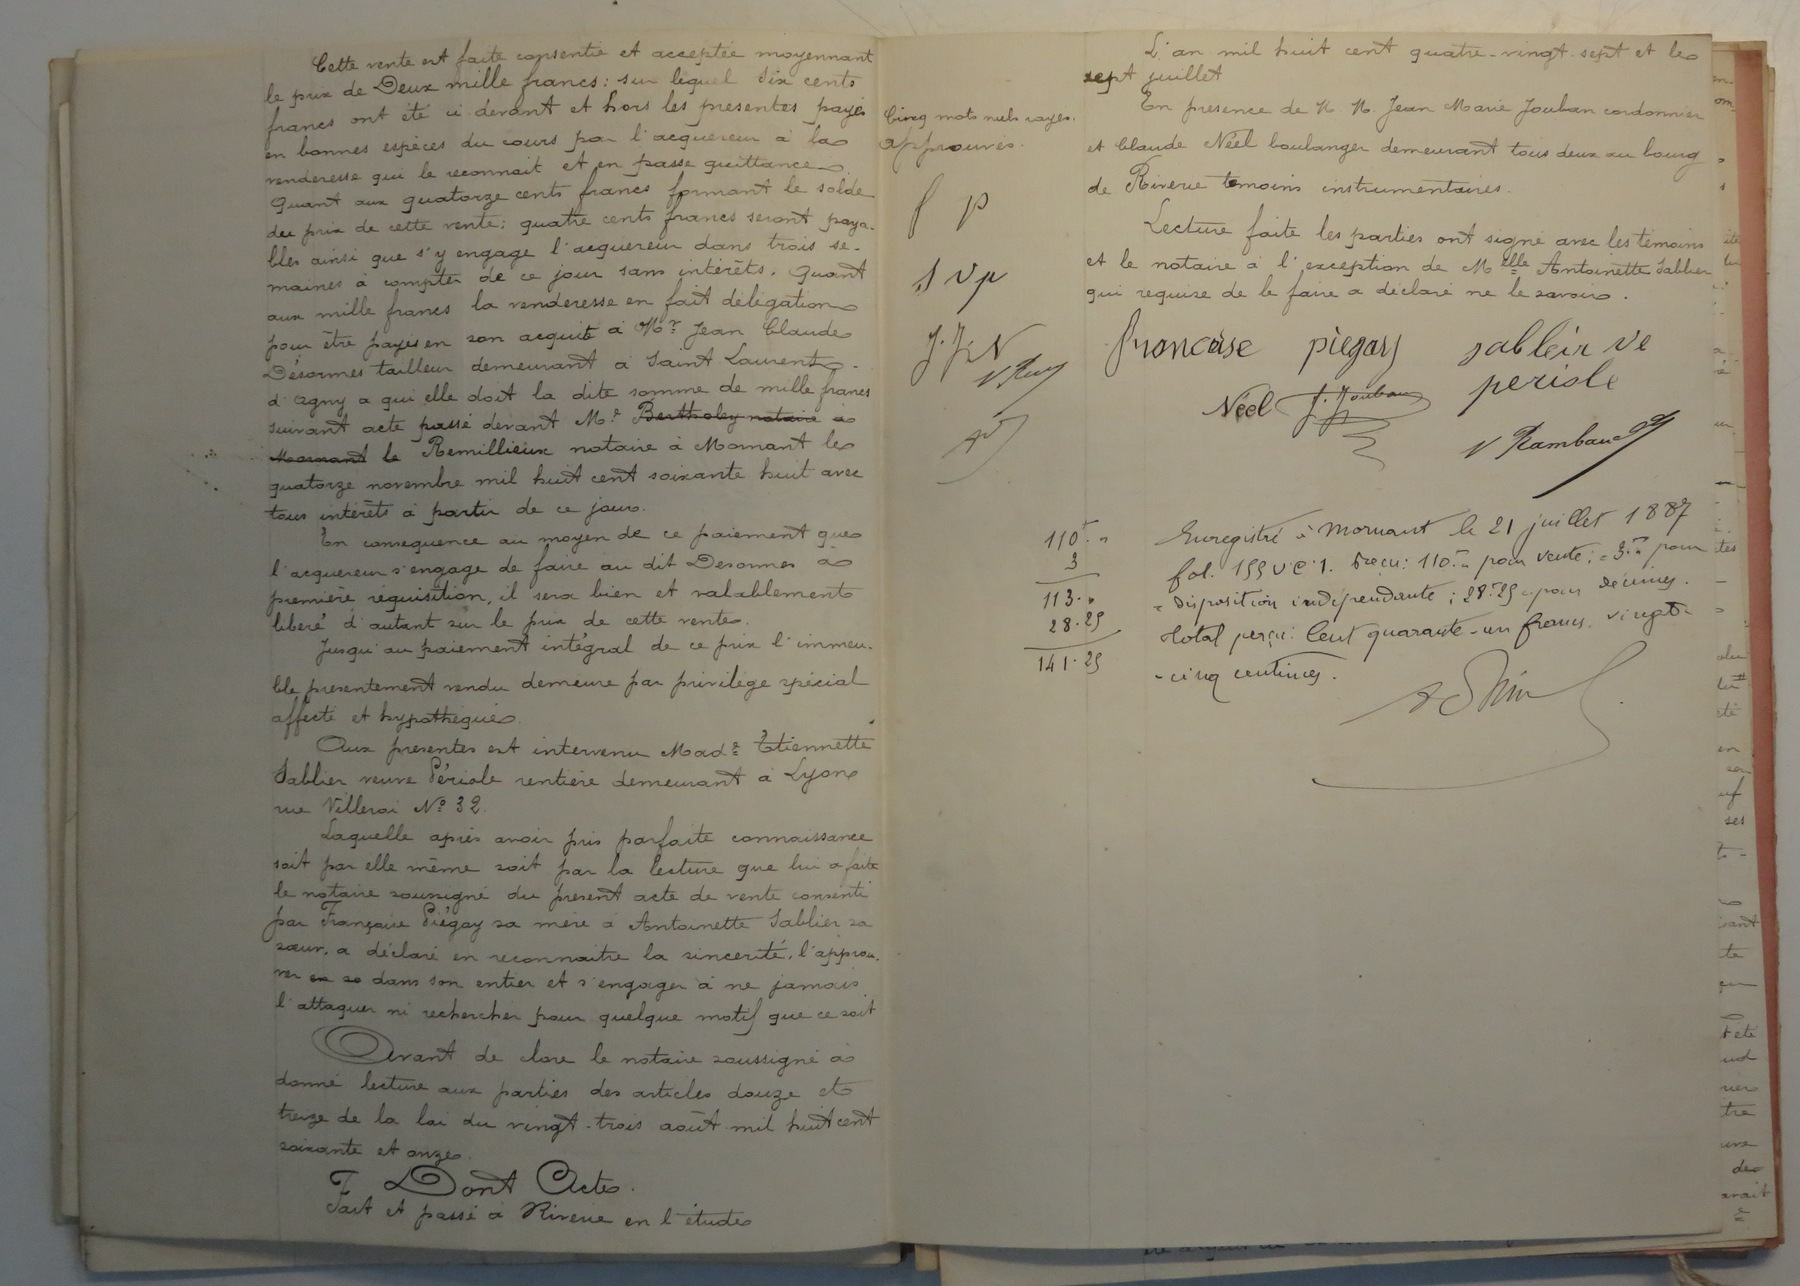 Cette vente est faite consentie et acceptée moyennant
le prix de Deux mille francs: sur lequel six cents
francs ont été ci devant et hors les presentes payés
en bonnes espèces du cours par l'acquereur à la
venderesse qui le reconnait et en passe quittance.
Quant aux quatorze cents francs formant le solde
du prix de cette vente: quatre cents francs seront paya-
bles ainsi que s'y engage l'acquereur dans trois se-
maines à compter de ce jour sans intérêts. Quant
aux mille francs la venderesse en fait délégation
pour être payés en son acquit à Mr Jean Claude
Désormes tailleur demeurant à Saint Laurent
d'agny a qui elle doit la dite somme de mille francs
suivant acte passé devant Me Bertholey notaire à
Mornant le Remillieux notaire à Mornant le
quatorze novembre mil huit cent soixante huit avec
tous intérêts à partir de ce jour.
En consequence au moyen de ce paiement que
l'acquereur s'engage de faire au dit Desormes à
première réquisition, il sera bien et valablement
liberé d'autant sur le prix de cette vente.
Jusqu'au paiement intégral de ce prix l'immeu-
ble presentement vendu demeure par privilège spécial
affecté et hypothéqué.
Aux presentes est intervenu Made Etiennette
Sablier veuve Périole rentière demeurant à Lyon
rue Villeroi No 32.
Laquelle après avoir pris parfaite connaissance
soit par elle même soit par la lecture que lui a faite
le notaire soussigné du présent acte de vente consenti
par Françoise Piégay sa mère à Antoinette Sablier sa
sœur, a déclaré en reconnaitre la sincerité, l'approu-
ver en so dans son entier et s'engager à ne jamais
l'attaquer ni rechercher pour quelque motif que ce soit
Avant de clore le notaire soussigné a
donné lecture aux parties des articles douze et
treize de la loi du vingt-trois août mil huit cent
soixante et onze.
Dont Acte.
Fait et passé à Riverie en l'étude
Cinq mots nuls rayés.
approuvés.
f p
s v p
J. J. N
L'an mil huit cent quatre-vingt-sept et le
sept juillet
En presence de M. M. Jean Marie Jouban cordonnier
et Claude Néel boulanger demeurant tous deux au bourg
de Riverie temoins instrumentaires.
Lecture faite les parties ont signé avec les témoins
et le notaire à l'exception de Melle Antoinette Sablier
qui requise de le faire a déclaré ne le savoir.
francoise piegay sableir ve
periole
Néel J. Jouban
V Rambaud
110f. "
3
113. "
28.25
141.25
Enregistré à Mornant le 21 juillet 1887
fol. 155 v c 1. Reçu: 110f." pour vente; 3f." pour
disposition indépendante; 28f.25c pour décimes.
Total perçu: Cent quarante-un francs. vingt-
-cinq centimes.